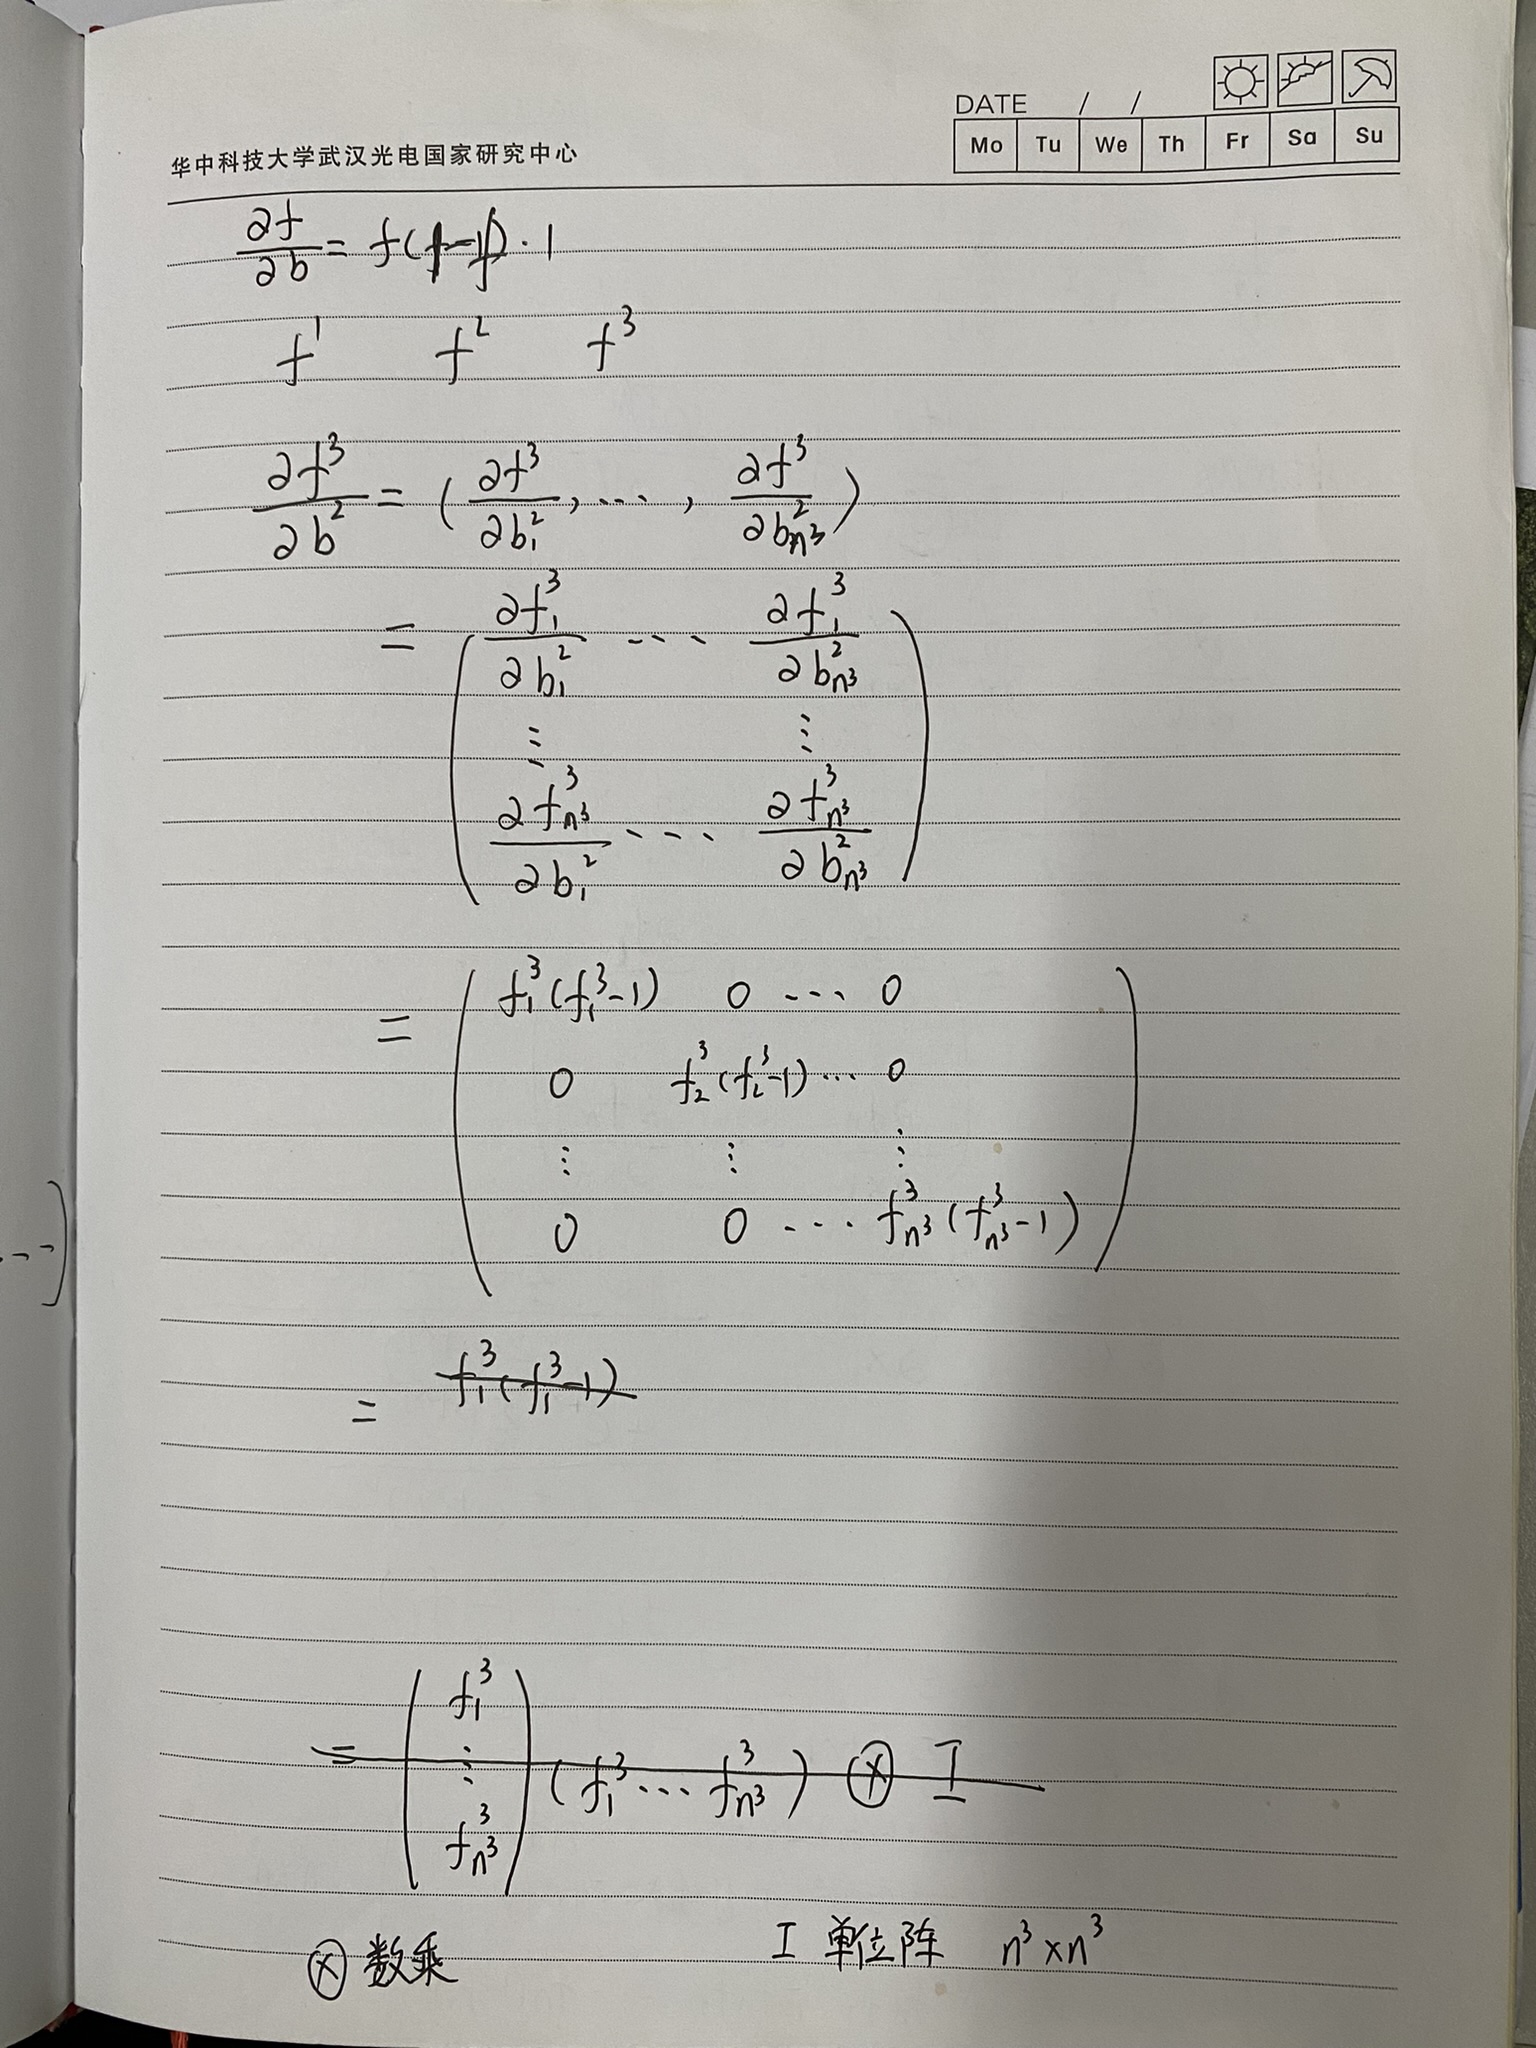 DATE / /
华中科技大学武汉光电国家研究中心
Mo Tu We Th Fr Sa Su
∂f/∂b = f( ) · 1
f¹ f² f³
∂f³/∂b² = (∂f³/∂b₁², ⋯, ∂f³/∂b²ₙ³)
= ( ∂f₁³/∂b₁² ⋯ ∂f₁³/∂b²ₙ³
⋮ ⋮
∂f³ₙ³/∂b₁² ⋯ ∂f³ₙ³/∂b²ₙ³ )
= ( f₁³(f₁³-1) 0 ⋯ 0
0 f₂³(f₂³-1) ⋯ 0
⋮ ⋮ ⋮
0 0 ⋯ f³ₙ³(f³ₙ³-1) )
= f₁³(f₁³-1)
= ( f₁³ ⋮ f³ₙ³ ) (f₁³ ⋯ f³ₙ³) ⊗ I
⊗ 数乘 I 单位阵 n³×n³
⋯ )